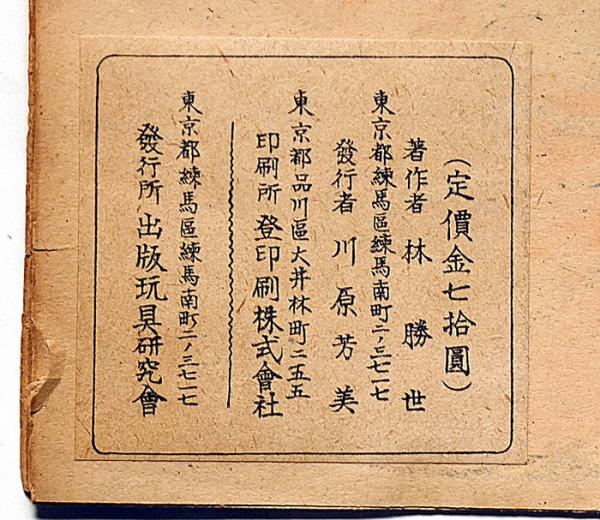 (定價金七拾圓)
著作者 林勝世
東京都練馬區練馬南町二ノ三七一七
發行者 川原芳美
東京都品川區大井林町二五五
印刷所 登印刷株式會社
東京都練馬區練馬南町二ノ三七一七
發行所 出版玩具研究會